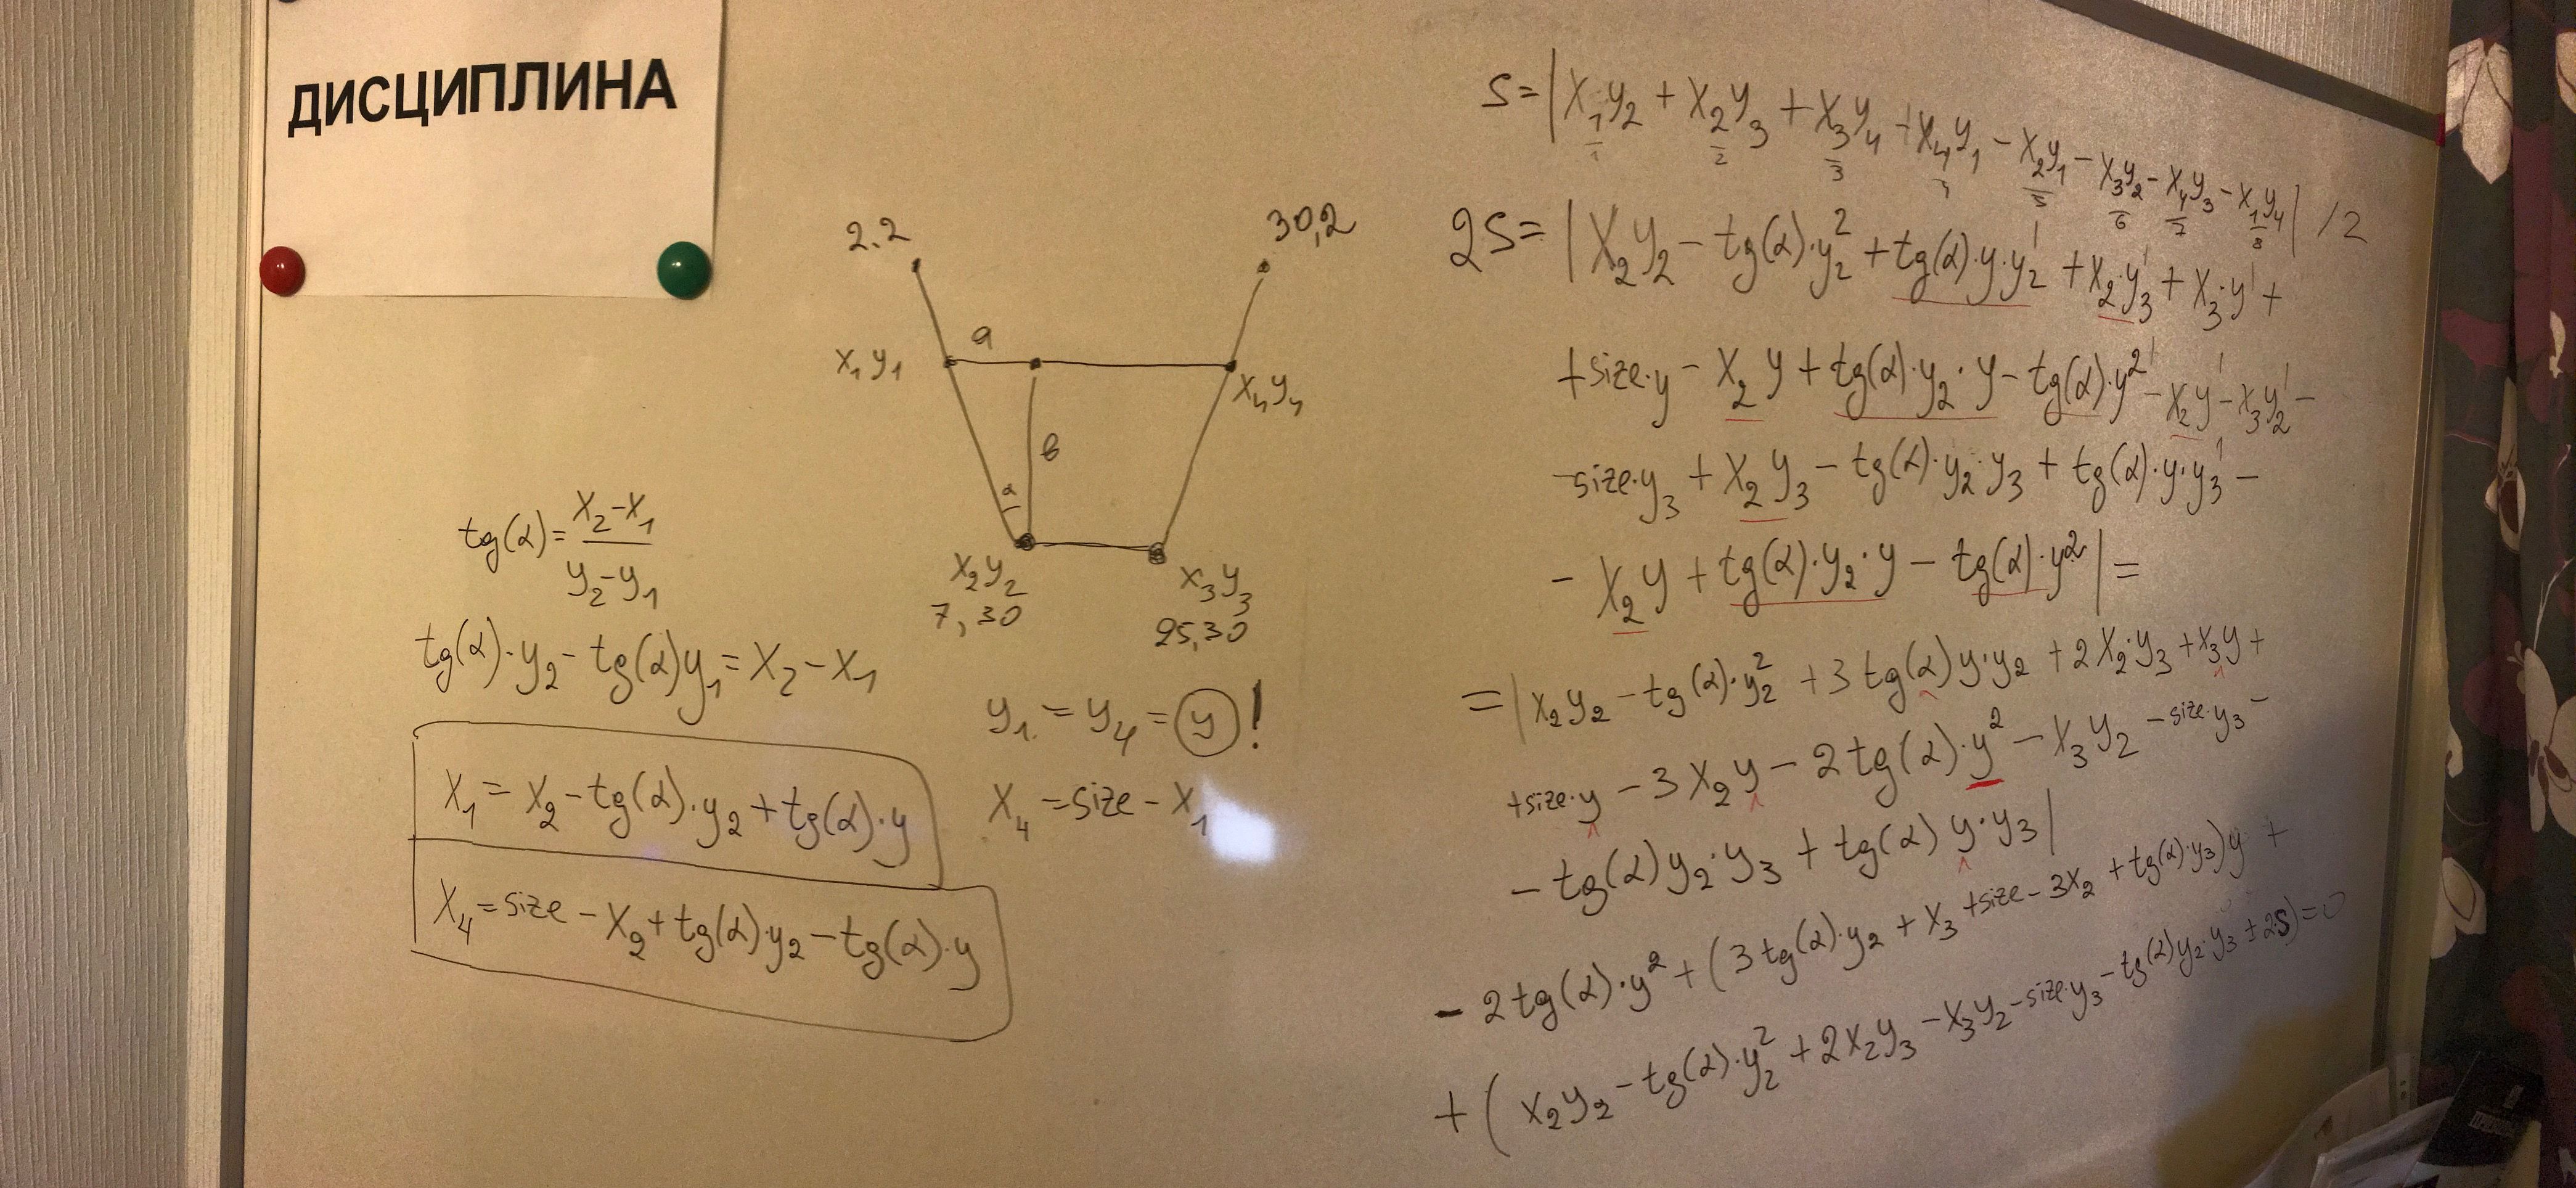 ДИСЦИПЛИНА
2.2
30,2
a
x₁y₁
x₄y₄
b
α
x₂y₂
7,30
x₃y₃
25,30
tg(α)=(x₂-x₁)/(y₂-y₁)
tg(α)·y₂-tg(α)y₁=x₂-x₁
x₁=x₂-tg(α)·y₂+tg(α)·y
x₄=size-x₂+tg(α)·y₂-tg(α)·y
y₁=y₄=y!
x₄=size-x₁
S=|x₁y₂+x₂y₃+x₃y₄+x₄y₁-x₂y₁-x₃y₂-x₄y₃-x₁y₄|/2
1 2 3 4 5 6 7 8
2S=|x₂y₂-tg(α)·y₂²+tg(α)·y·y₂+x₂·y₃+x₃·y+
+size·y-x₂y+tg(α)·y₂·y-tg(α)·y²-x₂y-x₃y₂-
-size·y₃+x₂y₃-tg(α)·y₂·y₃+tg(α)·y·y₃-
-x₂y+tg(α)·y₂·y-tg(α)·y²|=
=|x₂y₂-tg(α)·y₂²+3tg(α)y·y₂+2x₂·y₃+x₃y+
+size·y-3x₂y-2tg(α)·y²-x₃y₂-size·y₃-
-tg(α)y₂·y₃+tg(α)y·y₃|
-2tg(α)·y²+(3tg(α)·y₂+x₃+size-3x₂+tg(α)·y₃)y+
+(x₂y₂-tg(α)·y₂²+2x₂y₃-x₃y₂-size·y₃-tg(α)y₂·y₃±2S)=0